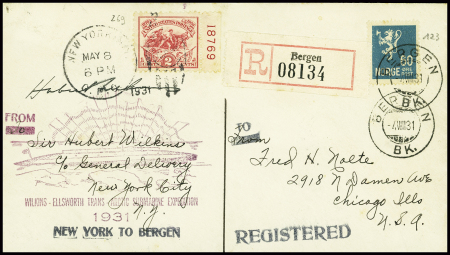 269
NEW YORK
MAY 8
6 PM
1931
2
18769
R
Bergen
08134
NORGE
123
BERGEN
31
BERGEN
31
BK.
FROM
TO
Sir Hubert Wilkins
c/o General Delivery
New York City
N.Y.
WILKINS - ELLSWORTH TRANS ARCTIC SUBMARINE EXPEDITION
1931
NEW YORK TO BERGEN
From
Fred H. Nolte
2918 N Damen Ave
Chicago Ills
U.S.A.
REGISTERED